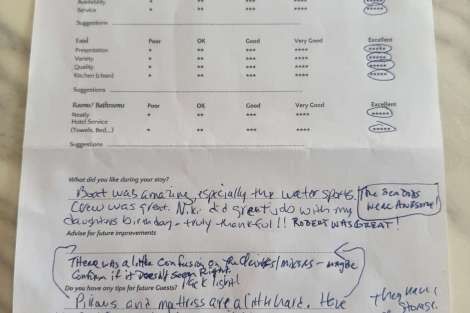 Availability
Service * ** *** **** *****
Suggestions
Food Poor OK Good Very Good Excellent
Presentation * ** *** **** *****
Variety * ** *** **** *****
Quality * ** *** **** *****
Kitchen * ** *** **** *****
Suggestions
Rooms / Bathrooms Poor OK Good Very Good Excellent
Neatly * ** *** **** *****
Hotel Service
(Towels, Bed...) * ** *** **** *****
Suggestions
What did you like during your stay?
Boat was amazing, especially the water sports.
The Sea Bobs were Awesome!
Crew was great. Niki did great job with my
daughters birthday - truly thankful!! ROBERT WAS GREAT!
Advice for future improvements
There was a little confusion on the /mixers - maybe
confirm if it doesn't seem right.
light!
Do you have any tips for future Guests?
Pillows and mattress are a little hard. Have
They have
storage